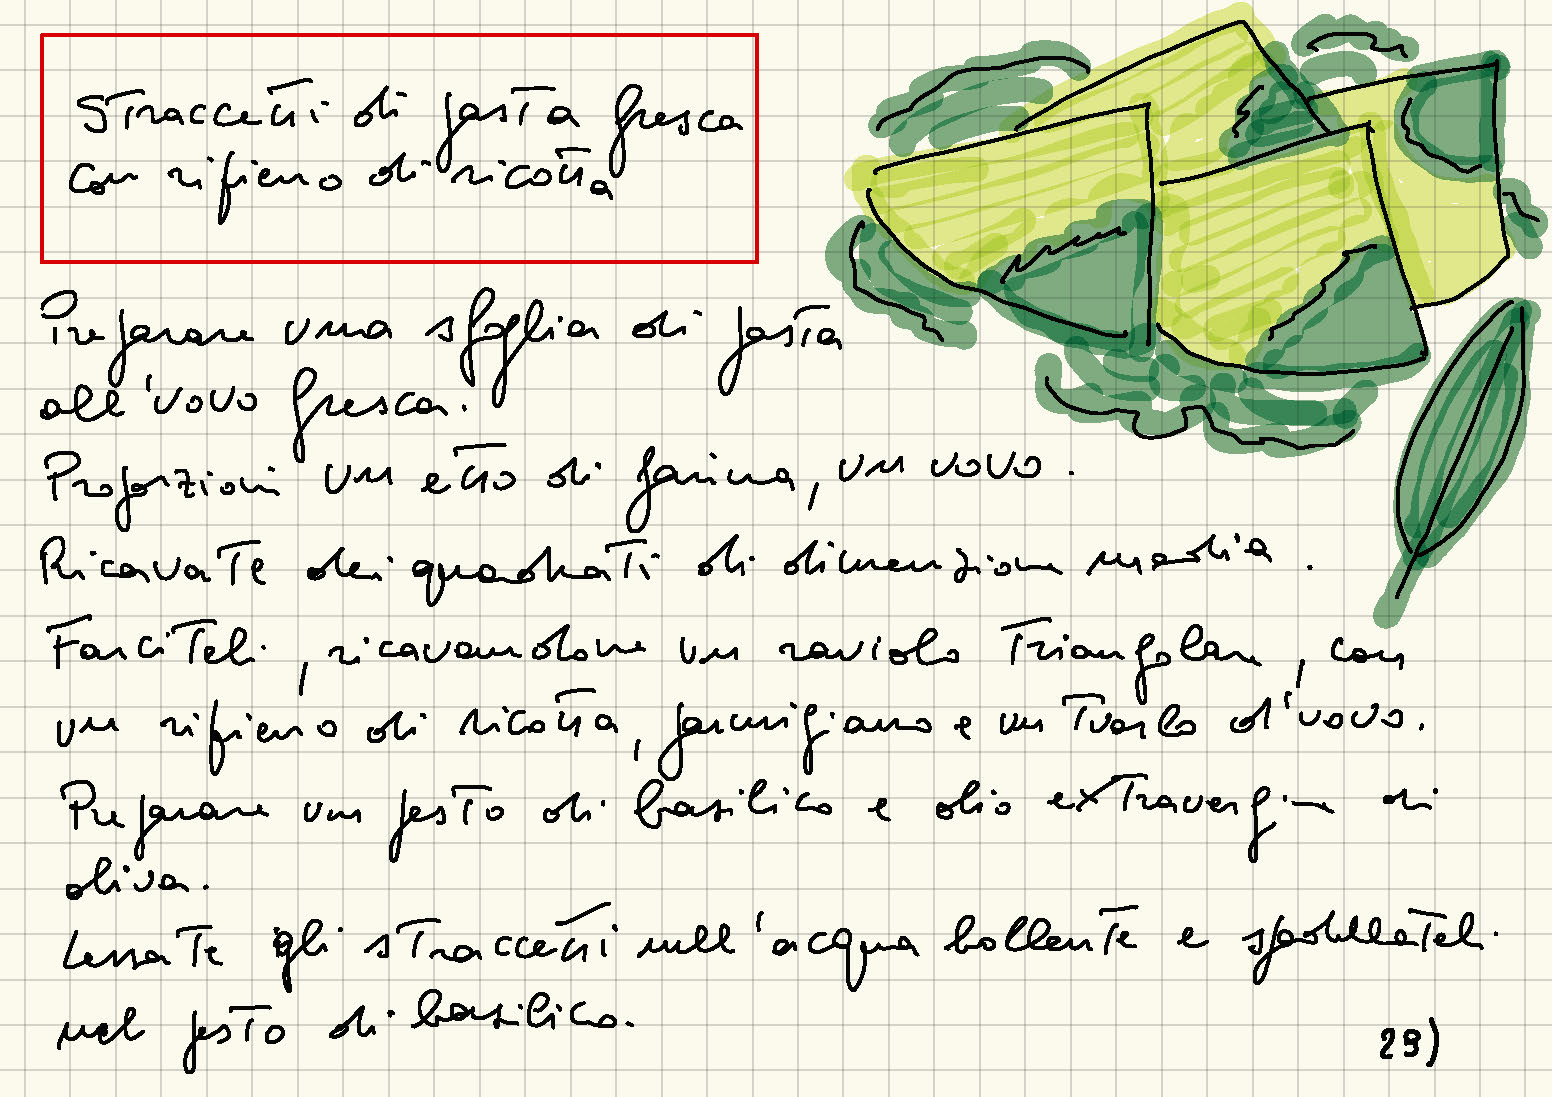 Straccetti di pasta fresca
con ripieno di ricotta
Preparare una sfoglia di pasta
all'uovo fresca.
Proporzioni un etto di farina, un uovo.
Ricavate dei quadrati di dimensione media.
Farciteli, ricavandone un raviolo triangolare, con
un ripieno di ricotta, parmigiano e un tuorlo d'uovo.
Preparare un pesto di basilico e olio extravergine di
oliva.
Lessate gli straccetti nell'acqua bollente e spadellateli
nel pesto di basilico.
29)